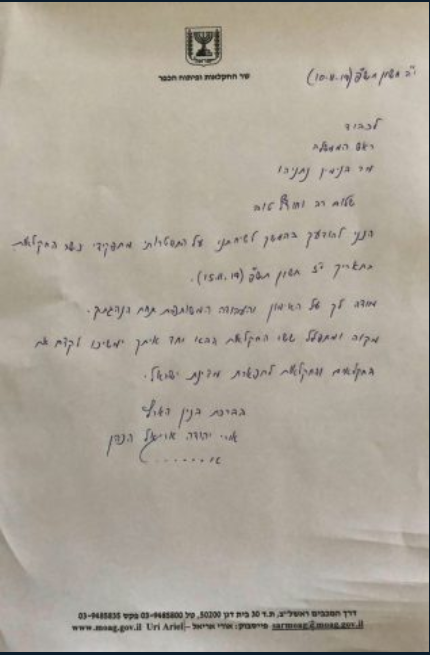 ישראל
שר החקלאות ופיתוח הכפר
י"ב חשון תש"פ (10.11.19)
לכבוד
ראש הממשלה
מר בנימין נתניהו
שלום רב
הנני להודיעך בהמשך לשיחתנו על התפטרותי מתפקידי כשר החקלאות
בתאריך י"ז חשון תש"פ (15.11.19).
מודה לך על האימון והעבודה המשותפת תחת הנהגתך.
מקוה ומתפלל ששר החקלאות הבא יחד איתך ימשיכו לקדם את
החקלאים והחקלאות לתפארת מדינת ישראל.
בברכת בנין הארץ
אורי יהודה אריאל הכהן
דרך המכבים ראשל"צ, ת.ד 30 בית דגן 50200, טל 03-9485800 פקס 03-9485835
www.moag.gov.il Uri Ariel – פייסבוק: אורי אריאל sarmoag@moag.gov.il